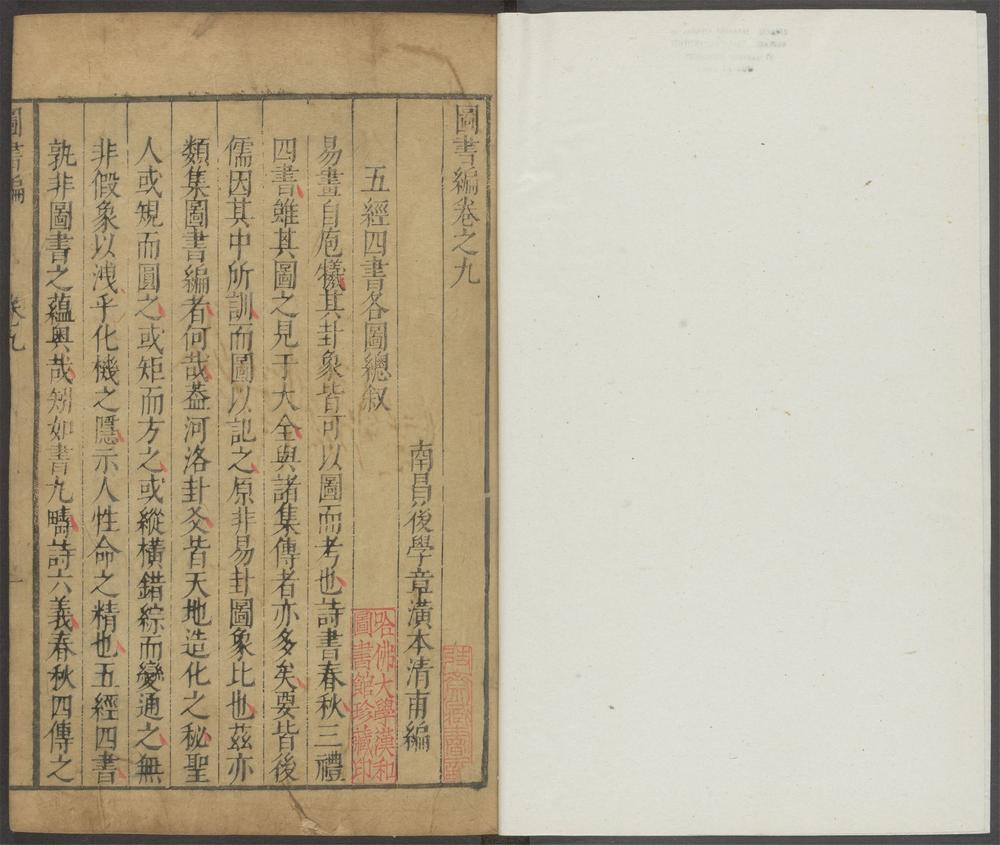 圖書編卷之九
南昌後學章潢本清甫編
五經四書各圖總叙
易畫自庖犧其卦象皆可以圖而考也詩書春秋三禮
四書雖其圖之見于大全與諸集傳者亦多矣要皆後
儒因其中所訓而圖以記之原非易卦圖象比也茲亦
類集圖書編者何哉葢河洛卦爻皆天地造化之秘聖
人或規而圓之或矩而方之或縱橫錯綜而變通之無
非假象以洩乎化機之隱示人性命之精也五經四書
孰非圖書之蘊奧哉矧如書九疇詩六義春秋四傳之
圖書編
卷之九
一
哈佛大學漢和
圖書館珍藏印